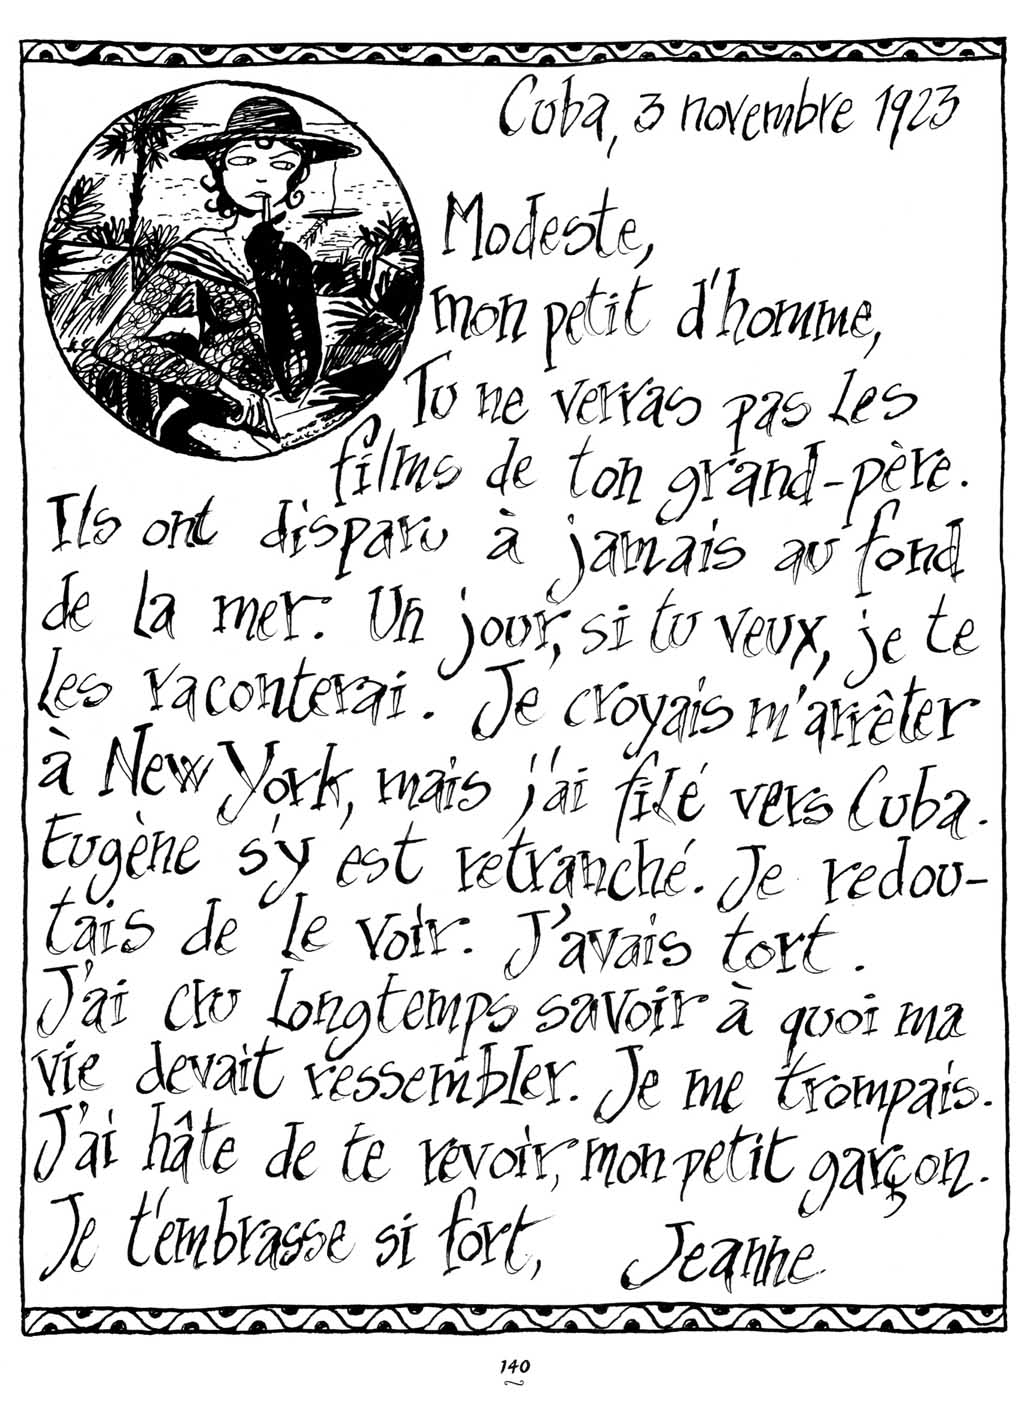 Cuba, 3 novembre 1923
Modeste,
mon petit d'homme,
Tu ne verras pas les
films de ton grand-père.
Ils ont disparu à jamais au fond
de la mer. Un jour, si tu veux, je te
les raconterai. Je croyais m'arrêter
à New York, mais j'ai filé vers Cuba.
Eugène s'y est retranché. Je redou-
tais de le voir. J'avais tort.
J'ai cru longtemps savoir à quoi ma
vie devait ressembler. Je me trompais.
J'ai hâte de te revoir, mon petit garçon.
Je t'embrasse si fort, Jeanne
140